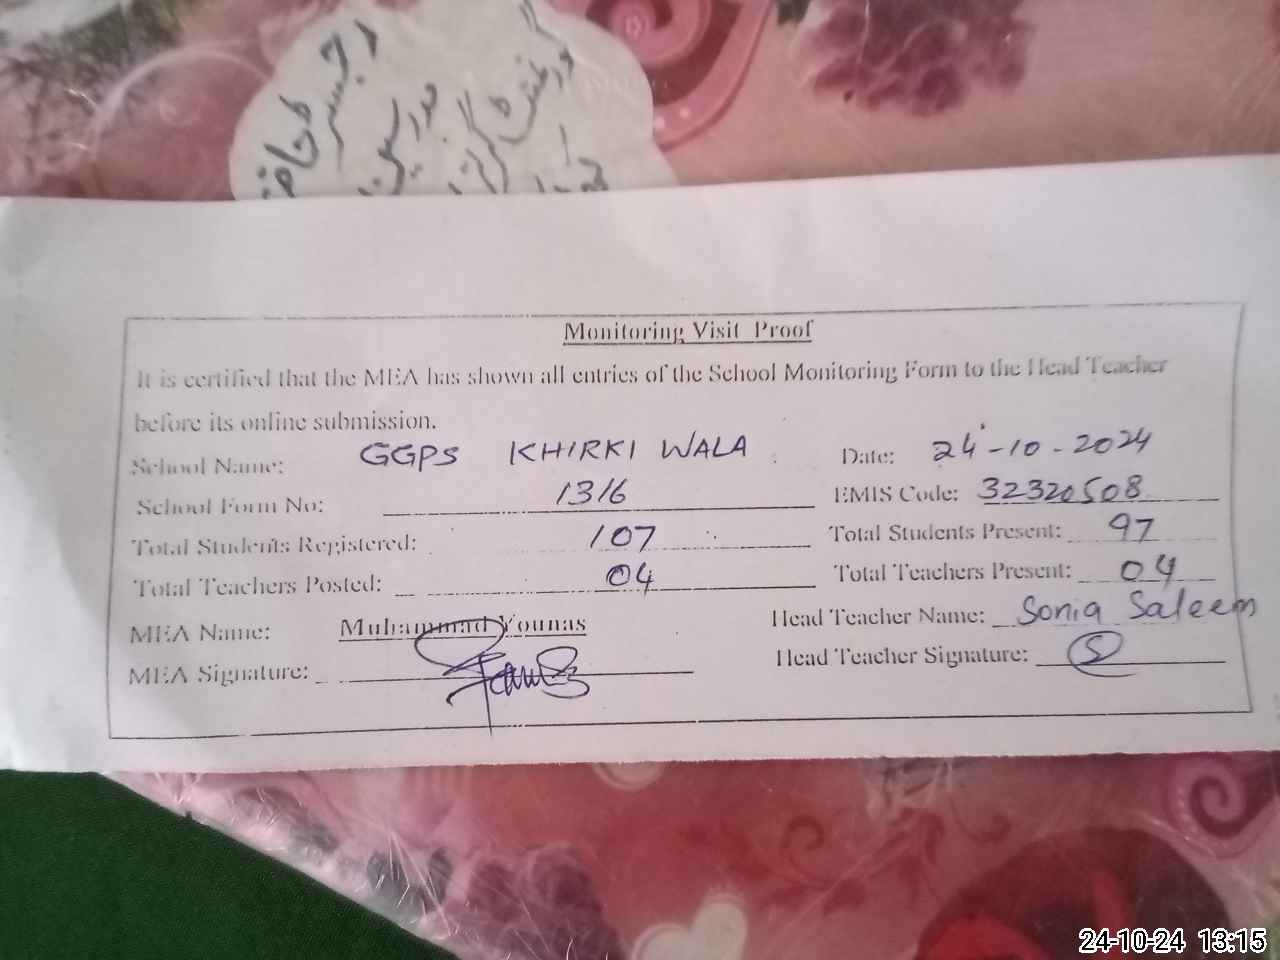 رجسٹر
حاضری
مدرسین
گورنمنٹ گرلز
Monitoring Visit Proof
It is certified that the MEA has shown all entries of the School Monitoring Form to the Head Teacher
before its online submission.
School Name: GGPS KHIRKI WALA Date: 24-10-2024
School Form No: 1316 EMIS Code: 32320508
Total Students Registered: 107 Total Students Present: 97
Total Teachers Posted: 04 Total Teachers Present: 04
MEA Name: Muhammad Younas Head Teacher Name: Sonia Saleem
MEA Signature: Head Teacher Signature: S
24-10-24 13:15